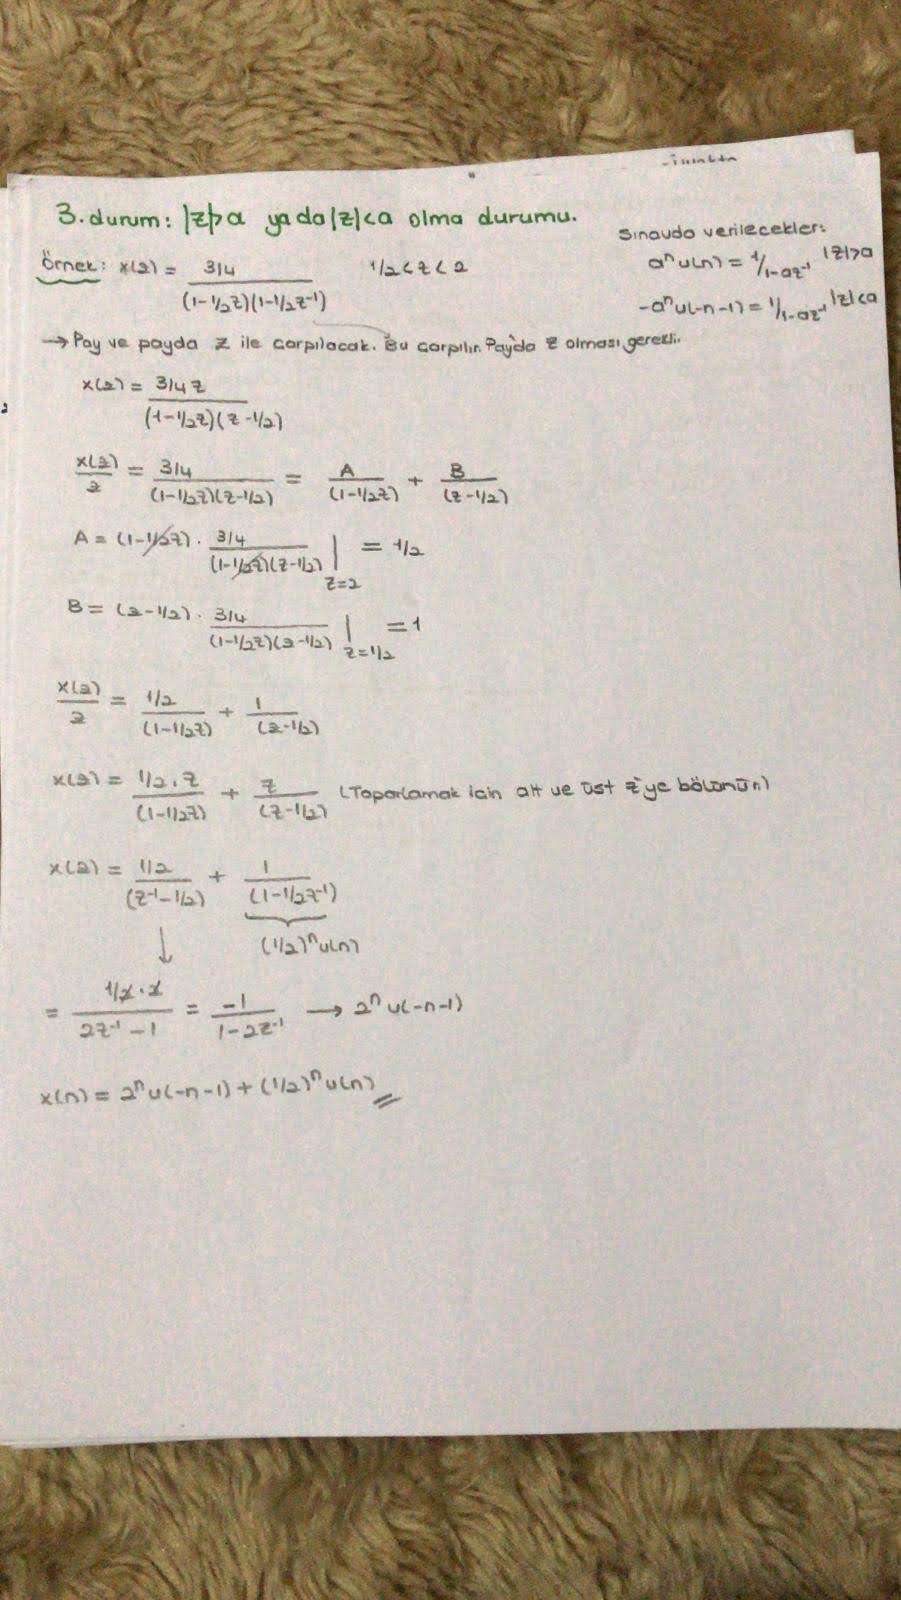 3. durum: |z|>a ya da |z|<a olma durumu.
Sınavda verilecekler:
aⁿu(n) = 1/1-az⁻¹ |z|>a
-aⁿu(-n-1) = 1/1-az⁻¹ |z|<a
Örnek: x(z) = 3/4 / (1-1/2z)(1-1/2z⁻¹) 1/2<z<2
→ Pay ve payda z ile çarpılacak. Bu çarpılır. Payda z olması gerekli.
x(z) = 3/4z / (1-1/2z)(z-1/2)
x(z)/z = 3/4 / (1-1/2z)(z-1/2) = A / (1-1/2z) + B / (z-1/2)
A = (1-1/2z) . 3/4 / (1-1/2z)(z-1/2) | z=2 = 1/2
B = (z-1/2) . 3/4 / (1-1/2z)(z-1/2) | z=1/2 = 1
x(z)/z = 1/2 / (1-1/2z) + 1 / (z-1/2)
x(z) = 1/2.z / (1-1/2z) + z / (z-1/2) (Toparlamak için alt ve üst z'ye bölünün)
x(z) = 1/2 / (z⁻¹-1/2) + 1 / (1-1/2z⁻¹)
↓ (1/2)ⁿu(n)
= 1/2.2 / 2z⁻¹-1 = -1 / 1-2z⁻¹ → 2ⁿu(-n-1)
x(n) = 2ⁿu(-n-1) + (1/2)ⁿu(n)